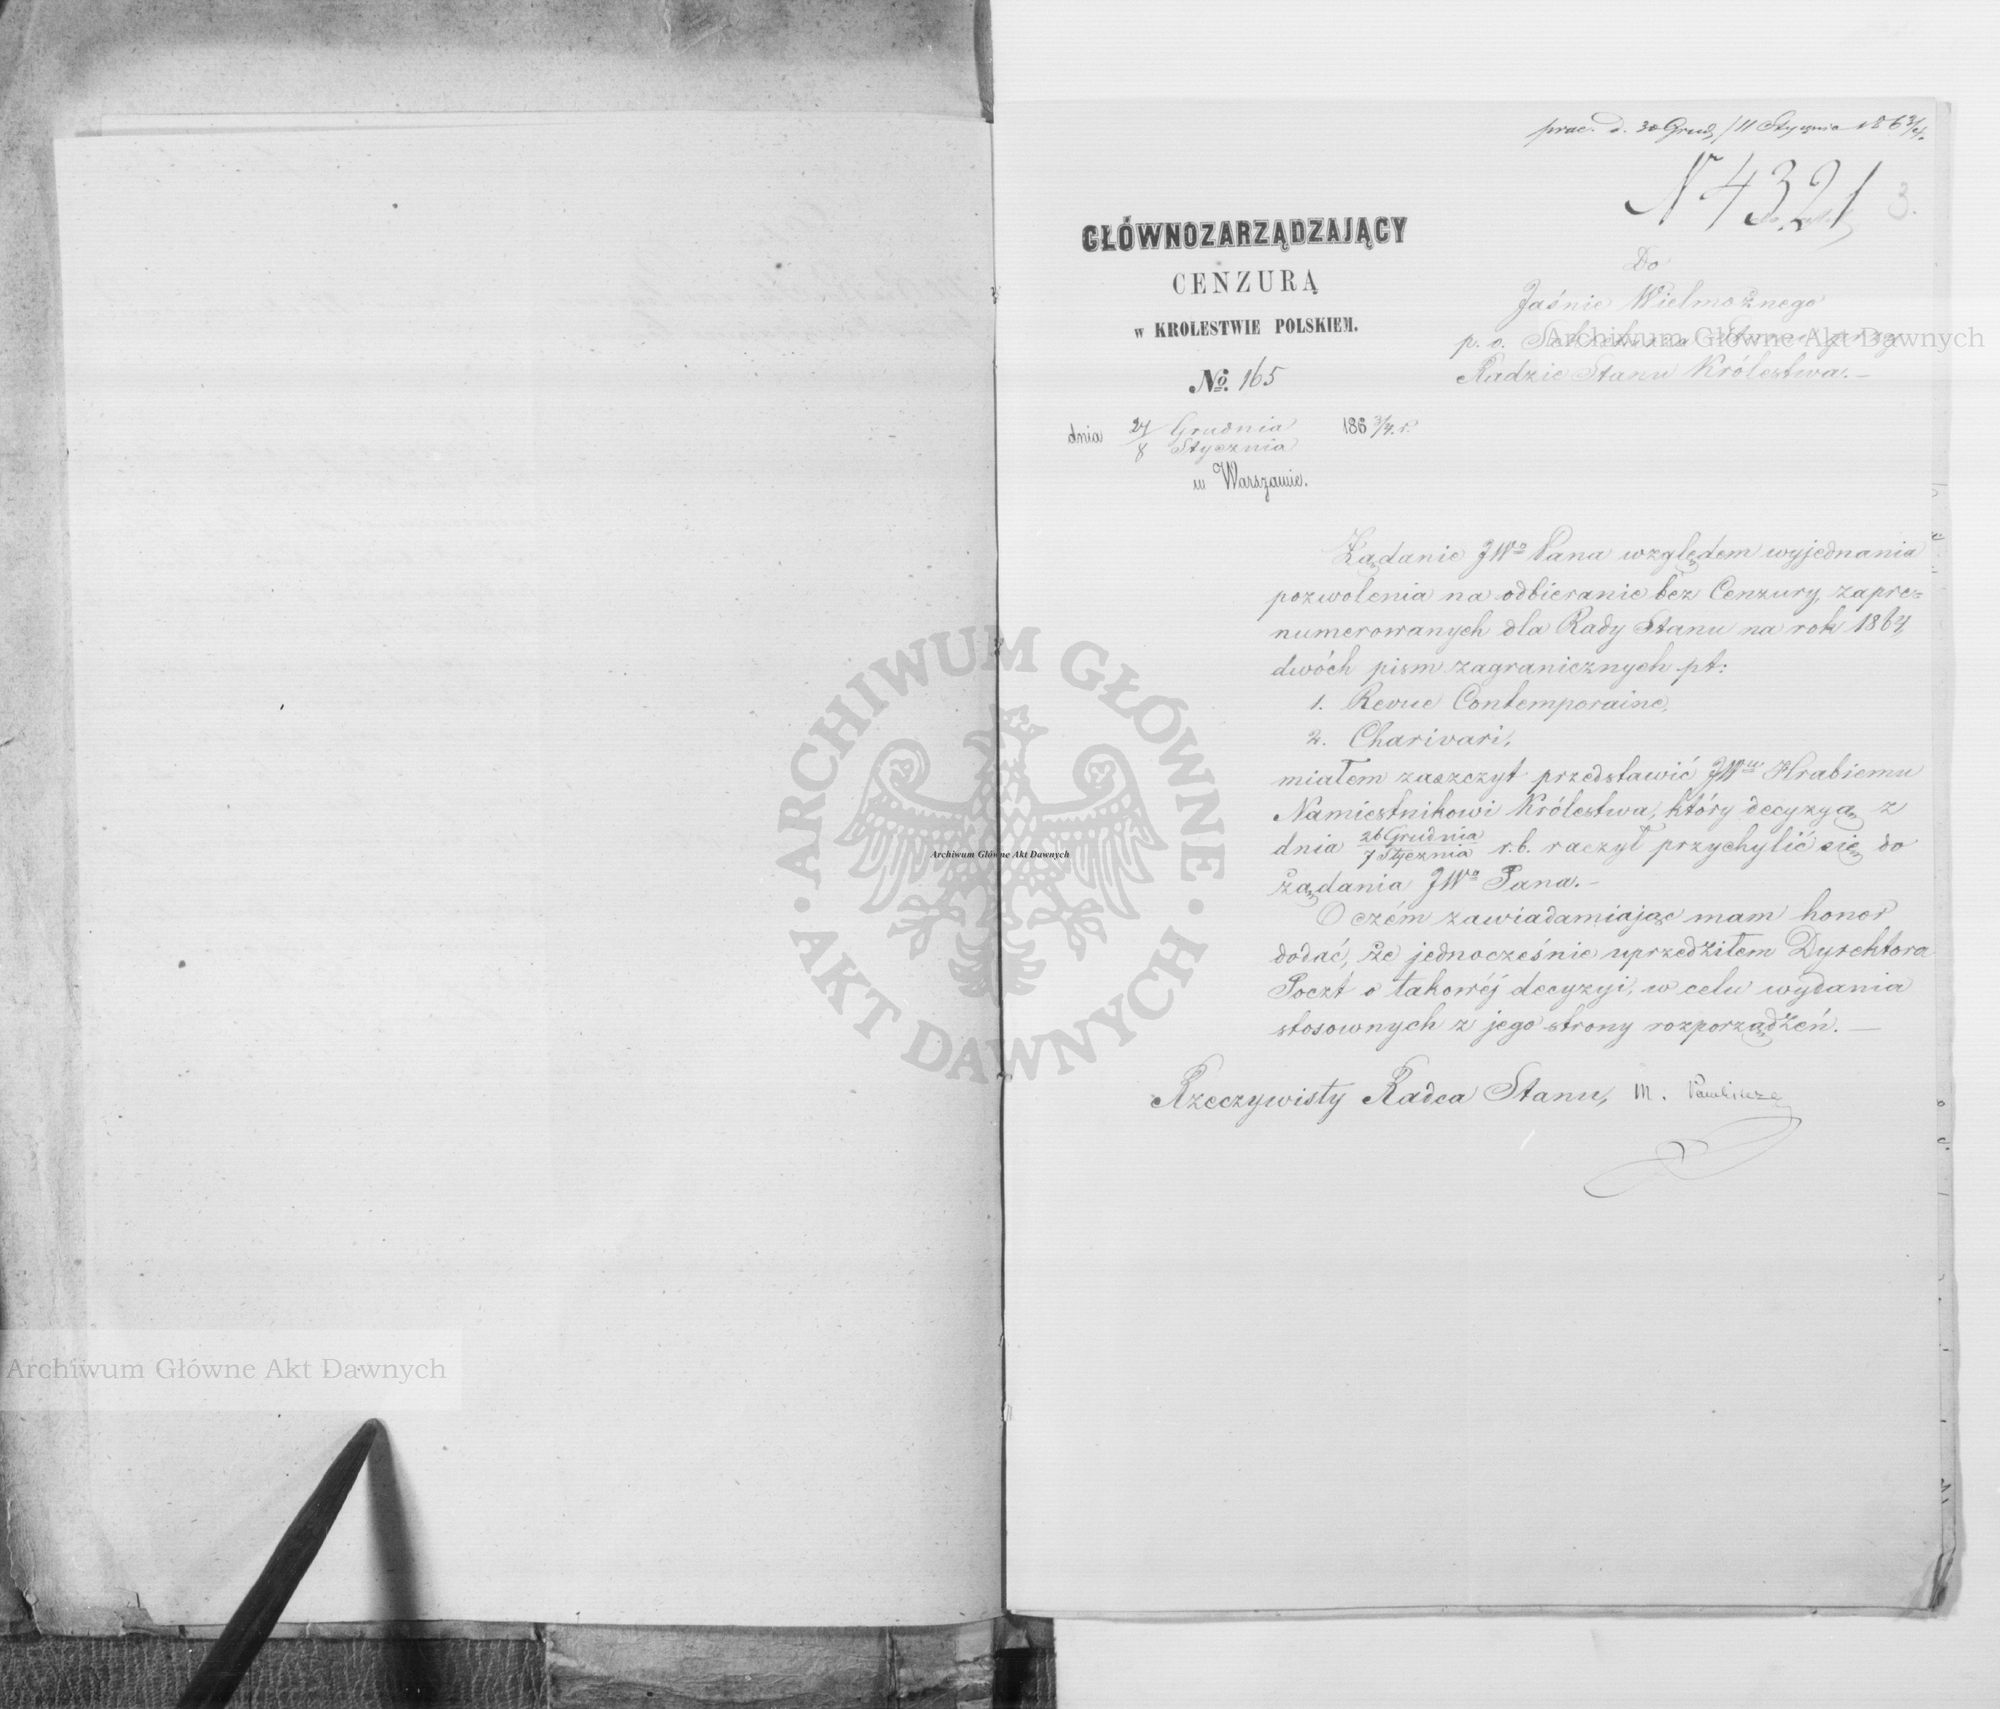 prac. d. 30 Grud / 11 Stycznia 1863/4.
N 4321
3.
GŁÓWNOZARZĄDZAJĄCY
CENZURĄ
w KROLESTWIE POLSKIEM.
No. 165
dnia 27/8 Grudnia/Stycznia 1863/4. r.
w Warszawie.
Do
Jaśnie Wielmożnego
p. o. Sekretarza Stanu przy
Radzie Stanu Królestwa. —
Żądanie JWo Pana względem wyjednania
pozwolenia na odbieranie bez Cenzury, zapre=
numerowanych dla Rady Stanu na rok 1864,
dwóch pism zagranicznych pt:
1. Revue Contemporaine,
2. Charivari,
miałem zaszczyt przedstawić JWu Hrabiemu
Namiestnikowi Królestwa, który decyzyą z
dnia 26 Grudnia/7 Stycznia r. b. raczył przychylić się do
żądania JWo Pana. —
O czém zawiadamiając mam honor
dodać, że jednocześnie uprzedziłem Dyrektora
Poczt o takowéj decyzyi, w celu wydania
stosownych z jego strony rozporządzeń. —
Rzeczywisty Radca Stanu, M.
Archiwum Główne Akt Dawnych
Archiwum Główne Akt Dawnych
Archiwum Główne Akt Dawnych
ARCHIWUM GŁÓWNE
AKT DAWNYCH